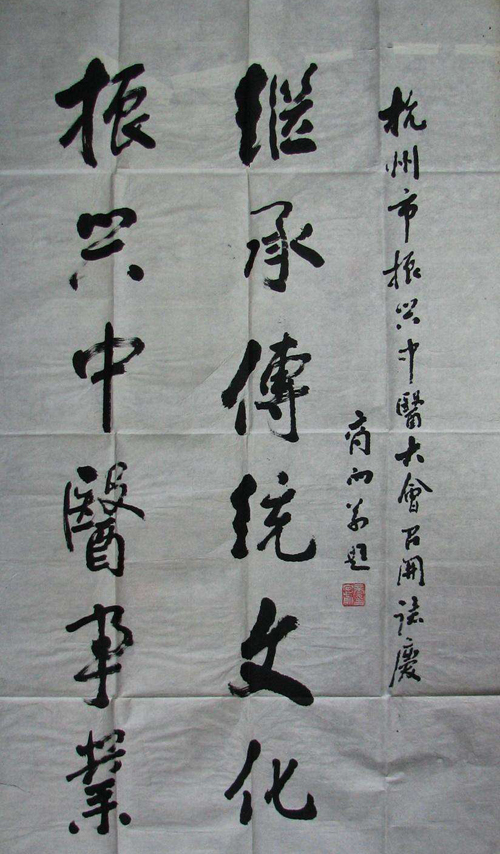 杭州市振兴中醫大會召開誌慶
商向前題
继承傳統文化
振兴中醫事業